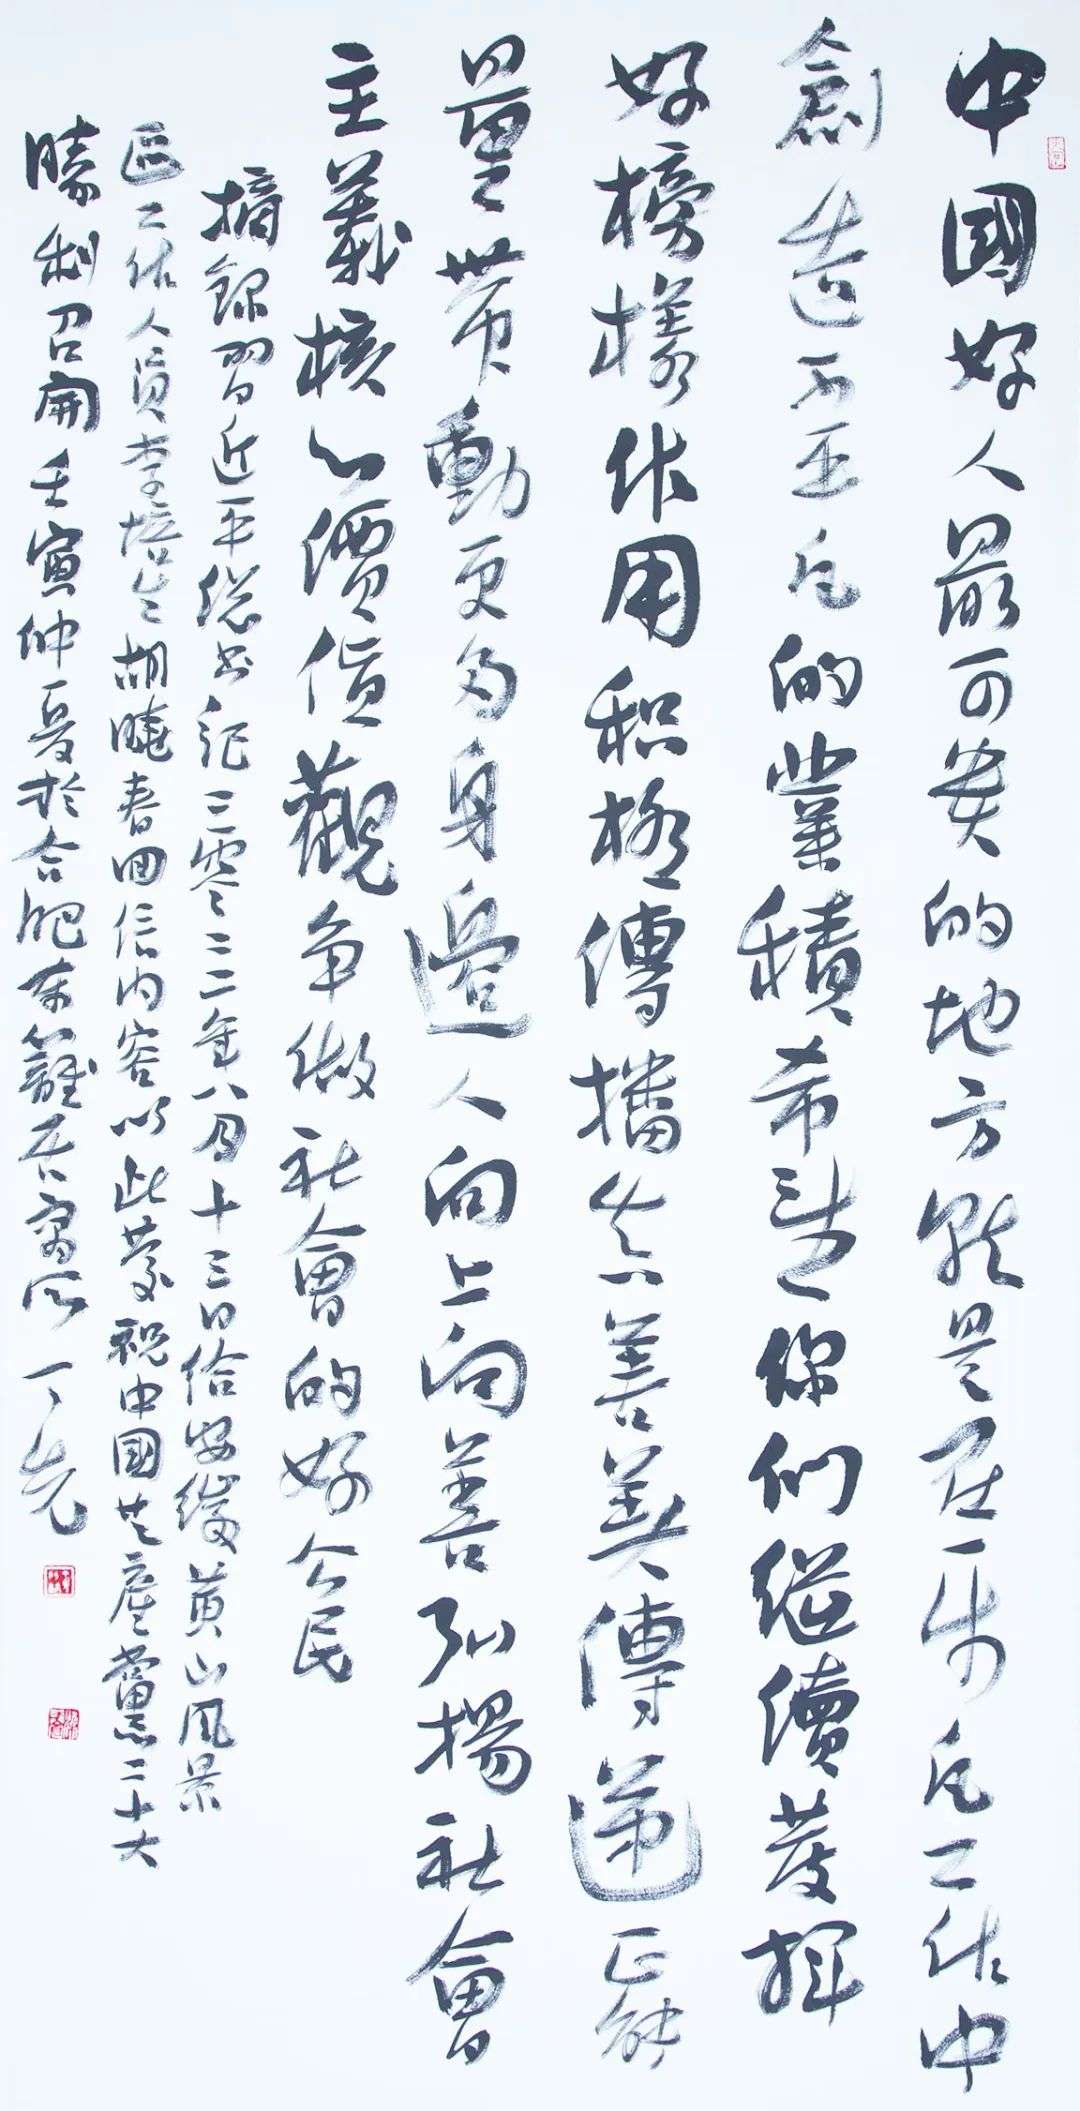 中國好人最可贵的地方就是在平凡工作中
創造不平凡的業積希望你们继續發揮
好榜樣作用积极傳播真善美傳递正能
量带動更多身邊人向上向善弘揚社會
主義核心價值觀争做社會的好公民
摘録習近平總书记二零二二年八月十三日给安徽黄山風景
區工作人員李培生胡曉春回信内容以此慶祝中國共產黨二十大
勝利召開壬寅仲夏於合肥東籬居寓所丁先